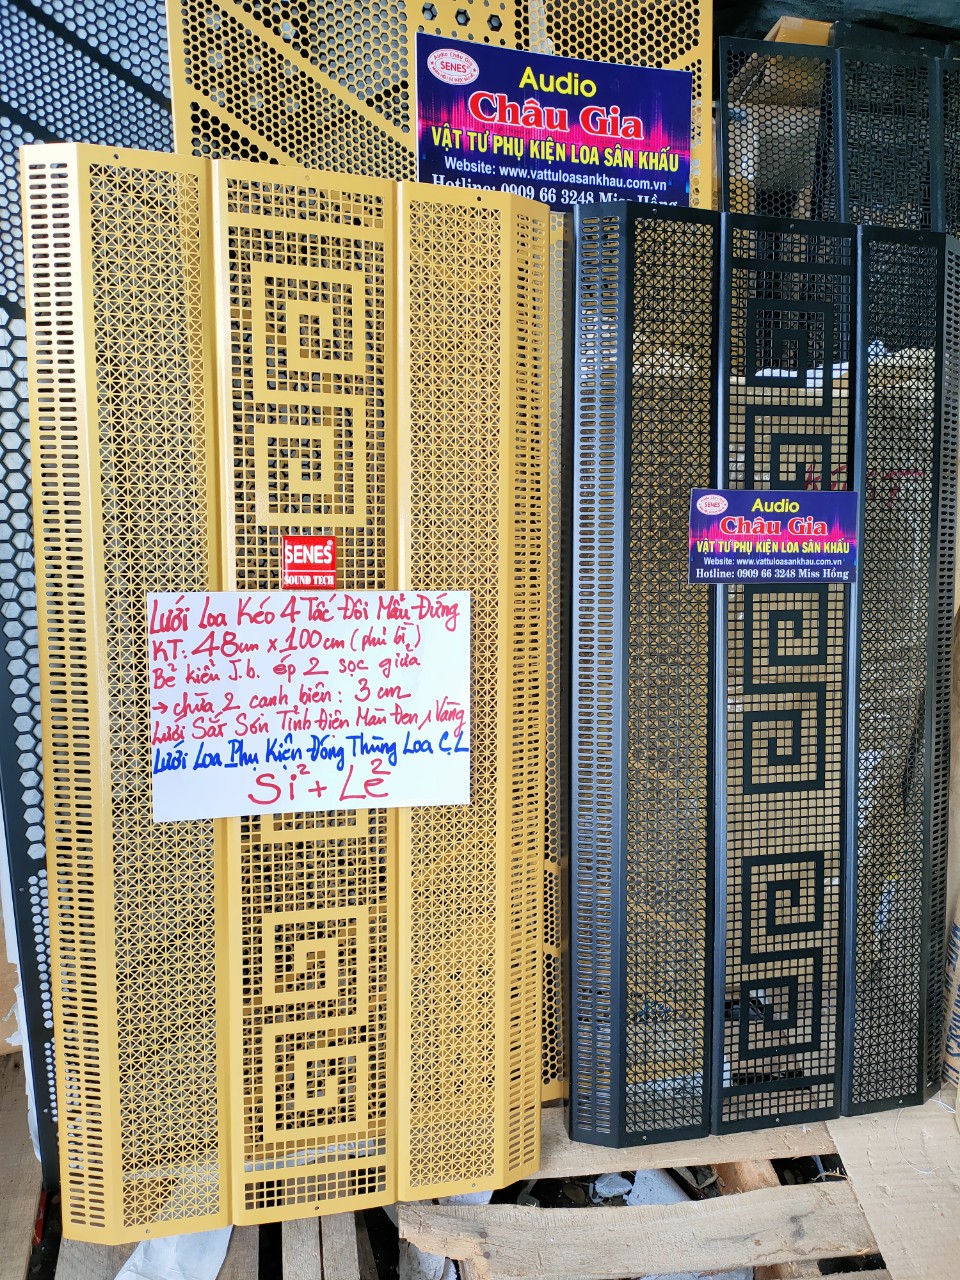 Audio Châu Gia
SENES
Audio
Châu Gia
VẬT TƯ PHỤ KIỆN LOA SÂN KHẤU
Website: www.vattuloasankhau.com.vn
Hotline: 0909 66 3248 Miss Hồng
SENES®
SOUND TECH
Lưới Loa Kéo 4 Tấc Đôi Mẫu Đứng
KT: 48cm x 100cm (phủ bì)
Bẻ kiểu J.b. ép 2 sọc giữa
→ chừa 2 cạnh biên: 3 cm
Lưới Sắt Sơn Tỉnh Điện Màu Đen, Vàng
Lưới Loa Phụ Kiện Đóng Thùng Loa C,L
Sỉ² + Lẻ²
SENES
Audio
Châu Gia
VẬT TƯ PHỤ KIỆN LOA SÂN KHẤU
Website: www.vattuloasankhau.com.vn
Hotline: 0909 66 3248 Miss Hồng